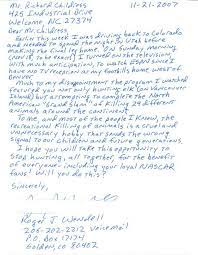 Mr. Richard Childress 11-21-2007
425 Industrial Drive
Welcome NC 27374
Dear Mr. Childress,
Earlier this week I was driving back to Colorado
and needed to spend the night in Utah before
making the final leg home. On Sunday morning
(Nov. 18, to be exact) I turned on the television,
with much anticipation, to watch ESPN since I
have no TV reception at my foothills home west of
Denver.
Much to my disappointment the program I watched
featured you not only hunting elk (on Vancouver
Island) but attempting to complete the North
American "Grand Slam" of killing 29 different
animals around the continent.
To me, and most of the people I know, the
recreational killing of animals is a cruel and
unnecessary hobby that sends the wrong
signal to our children and future generations.
I hope you will take this opportunity to
stop hunting, all together, for the benefit
of everyone - including your loyal NASCAR
fans! Will you do this?
Sincerely,
Roger J. Wendell
206-202-2212 voicemail
P.O. Box
Golden, CO 80402